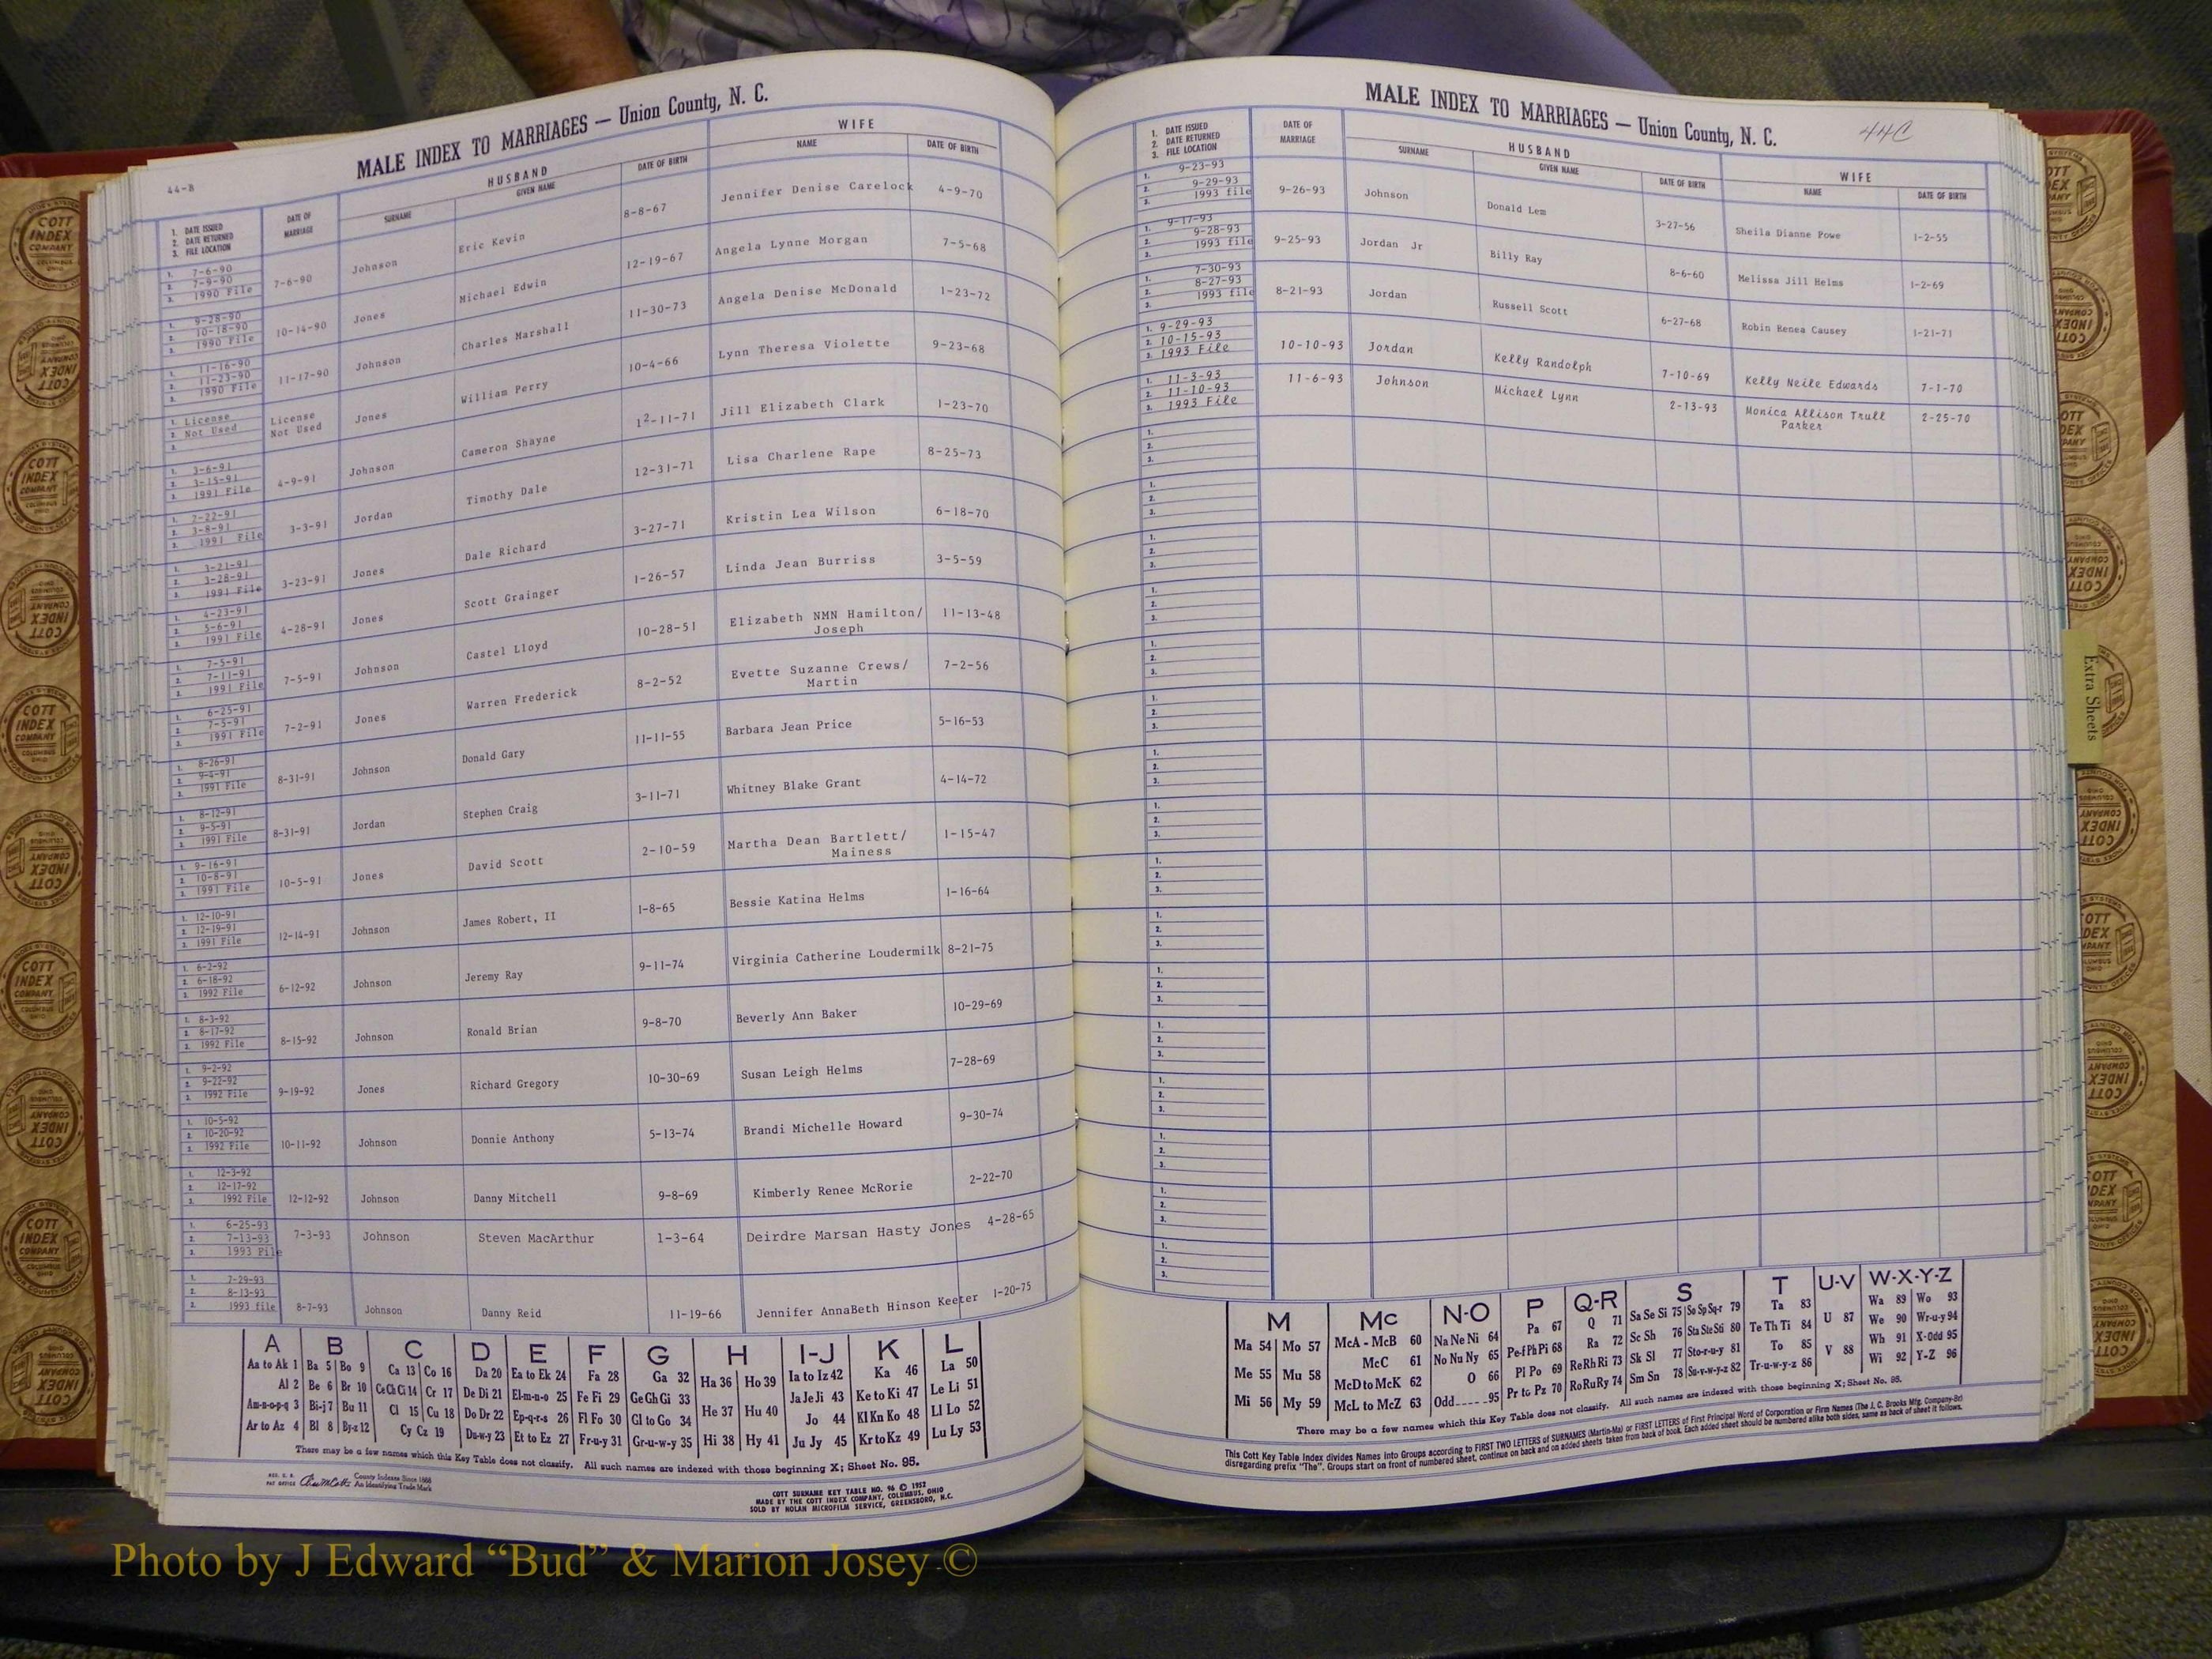 MALE INDEX TO MARRIAGES — Union County, N. C.
44-B
1. DATE ISSUED 2. DATE RETURNED 3. FILE LOCATION
DATE OF MARRIAGE
HUSBAND
SURNAME GIVEN NAME DATE OF BIRTH
WIFE
NAME DATE OF BIRTH
1. 7-6-90 2. 7-9-90 3. 1990 File 7-6-90 Johnson Eric Kevin 8-8-67 Jennifer Denise Carelock 4-9-70
1. 9-28-90 2. 10-18-90 3. 1990 File 10-14-90 Jones Michael Edwin 12-19-67 Angela Lynne Morgan 7-5-68
1. 11-16-90 2. 11-23-90 3. 1990 File 11-17-90 Johnson Charles Marshall 11-30-73 Angela Denise McDonald 1-23-72
1. License 2. Not Used 3. License Not Used Jones William Perry 10-4-66 Lynn Theresa Violette 9-23-68
1. 3-6-91 2. 3-15-91 3. 1991 File 4-9-91 Johnson Cameron Shayne 12-11-71 Jill Elizabeth Clark 1-23-70
1. 2-22-91 2. 3-8-91 3. 1991 File 3-3-91 Jordan Timothy Dale 12-31-71 Lisa Charlene Rape 8-25-73
1. 3-21-91 2. 3-28-91 3. 1991 File 3-23-91 Jones Dale Richard 3-27-71 Kristin Lea Wilson 6-18-70
1. 4-23-91 2. 5-6-91 3. 1991 File 4-28-91 Jones Scott Grainger 1-26-57 Linda Jean Burriss 3-5-59
1. 7-5-91 2. 7-11-91 3. 1991 File 7-5-91 Johnson Castel Lloyd 10-28-51 Elizabeth NMN Hamilton/ Joseph 11-13-48
1. 6-25-91 2. 7-5-91 3. 1991 File 7-2-91 Jones Warren Frederick 8-2-52 Evette Suzanne Crews/ Martin 7-2-56
1. 8-26-91 2. 9-4-91 3. 1991 File 8-31-91 Johnson Donald Gary 11-11-55 Barbara Jean Price 5-16-53
1. 8-12-91 2. 9-5-91 3. 1991 File 8-31-91 Jordan Stephen Craig 3-11-71 Whitney Blake Grant 4-14-72
1. 9-16-91 2. 10-8-91 3. 1991 File 10-5-91 Jones David Scott 2-10-59 Martha Dean Bartlett/ Mainess 1-15-47
1. 12-10-91 2. 12-19-91 3. 1991 File 12-14-91 Johnson James Robert, II 1-8-65 Bessie Katina Helms 1-16-64
1. 6-2-92 2. 6-18-92 3. 1992 File 6-12-92 Johnson Jeremy Ray 9-11-74 Virginia Catherine Loudermilk 8-21-75
1. 8-3-92 2. 8-17-92 3. 1992 File 8-15-92 Johnson Ronald Brian 9-8-70 Beverly Ann Baker 10-29-69
1. 9-2-92 2. 9-22-92 3. 1992 File 9-19-92 Jones Richard Gregory 10-30-69 Susan Leigh Helms 7-28-69
1. 10-5-92 2. 10-20-92 3. 1992 File 10-11-92 Johnson Donnie Anthony 5-13-74 Brandi Michelle Howard 9-30-74
1. 12-3-92 2. 12-17-92 3. 1992 File 12-12-92 Johnson Danny Mitchell 9-8-69 Kimberly Renee McRorie 2-22-70
1. 6-25-93 2. 7-13-93 3. 1993 File 7-3-93 Johnson Steven MacArthur 1-3-64 Deirdre Marsan Hasty Jones 4-28-65
1. 7-29-93 2. 8-13-93 3. 1993 file 8-7-93 Johnson Danny Reid 11-19-66 Jennifer AnnaBeth Hinson Keeter 1-20-75
A B C D E F G H I-J K L
Aa to Ak 1 Ba 5 Bo 9 Ca 13 Co 16 Da 20 Ea to Ek 24 Fa 28 Ga 32 Ha 36 Ho 39 Ia to Iz 42 Ka 46 La 50
Al 2 Be 6 Br 10 Ce Ch Ci 14 Cr 17 De Di 21 El-m-n-o 25 Fe Fi 29 Ge Gh Gi 33 He 37 Hu 40 Ja Je Ji 43 Ke to Ki 47 Le Li 51
Am-n-o-p-q 3 Bi-j 7 Bu 11 Cl 15 Cu 18 Do Dr 22 Ep-q-r-s 26 Fl Fo 30 Gl to Go 34 Hi 38 Hy 41 Jo 44 Kl Kn Ko 48 Ll Lo 52
Ar to Az 4 Bl 8 By-z 12 Cy Cz 19 Du-w-y 23 Et to Ez 27 Fr-u-y 31 Gr-u-w-y 35 Ju Jy 45 Kr to Kz 49 Lu Ly 53
There may be a few names which this Key Table does not classify. All such names are indexed with those beginning X; Sheet No. 95.
REG. U. S. PAT. OFFICE County Indexes Since 1888 An Identifying Trade Mark
COTT SURNAME KEY TABLE NO. 96 © 1952
MADE BY THE COTT INDEX COMPANY, COLUMBUS, OHIO
SOLD BY NOLAN MICROFILM SERVICE, GREENSBORO, N.C.
MALE INDEX TO MARRIAGES — Union County, N. C.
44C
1. DATE ISSUED 2. DATE RETURNED 3. FILE LOCATION
DATE OF MARRIAGE
HUSBAND
SURNAME GIVEN NAME DATE OF BIRTH
WIFE
NAME DATE OF BIRTH
1. 9-23-93 2. 9-29-93 3. 1993 file 9-26-93 Johnson Donald Lem 3-27-56 Sheila Dianne Powe 1-2-55
1. 9-17-93 2. 9-28-93 3. 1993 file 9-25-93 Jordan Jr Billy Ray 8-6-60 Melissa Jill Helms 1-2-69
1. 7-30-93 2. 8-27-93 3. 1993 file 8-21-93 Jordan Russell Scott 6-27-68 Robin Renea Causey 1-21-71
1. 9-29-93 2. 10-15-93 3. 1993 File 10-10-93 Jordan Kelly Randolph 7-10-69 Kelly Neile Edwards 7-1-70
1. 11-3-93 2. 11-10-93 3. 1993 File 11-6-93 Johnson Michael Lynn 2-13-93 Monica Allison Trull Parker 2-25-70
Extra Sheets
M Mc N-O P Q-R S T U-V W-X-Y-Z
Ma 54 Mo 57 McA - McB 60 Na Ne Ni 64 Pa 67 Q 71 Sa Se Si 75 So Sp Sq-r 79 Ta 83 U 87 Wa 89 Wo 93
Me 55 Mu 58 McC 61 No Nu Ny 65 Pe-f Ph Pi 68 Ra 72 Sc Sh 76 Sta Ste Sti 80 Te Th Ti 84 V 88 We 90 Wr-u-y 94
Mi 56 My 59 McD to McK 62 O 66 Pl Po 69 Re Rh Ri 73 Sk Sl 77 Sto-r-u-y 81 To 85 Wh 91 X-Odd 95
McL to McZ 63 Odd 95 Pr to Pz 70 Ro Ru Ry 74 Sm Sn 78 Su-v-w-y-z 82 Tr-u-w-y-z 86 Wi 92 Y-Z 96
There may be a few names which this Key Table does not classify. All such names are indexed with those beginning X; Sheet No. 95.
This Cott Key Table Index divides Names into Groups according to FIRST TWO LETTERS of SURNAMES (Martin-Ma) or FIRST LETTERS of First Principal Word of Corporation or Firm Names (The J. C. Brooks Mfg. Company-Br)
disregarding prefix "The". Groups start on front of numbered sheet, continue on back and on added sheets taken from back of book. Each added sheet should be numbered alike both sides, same as back of sheet it follows.
COTT INDEX COMPANY COLUMBUS OHIO
Photo by J Edward “Bud” & Marion Josey ©